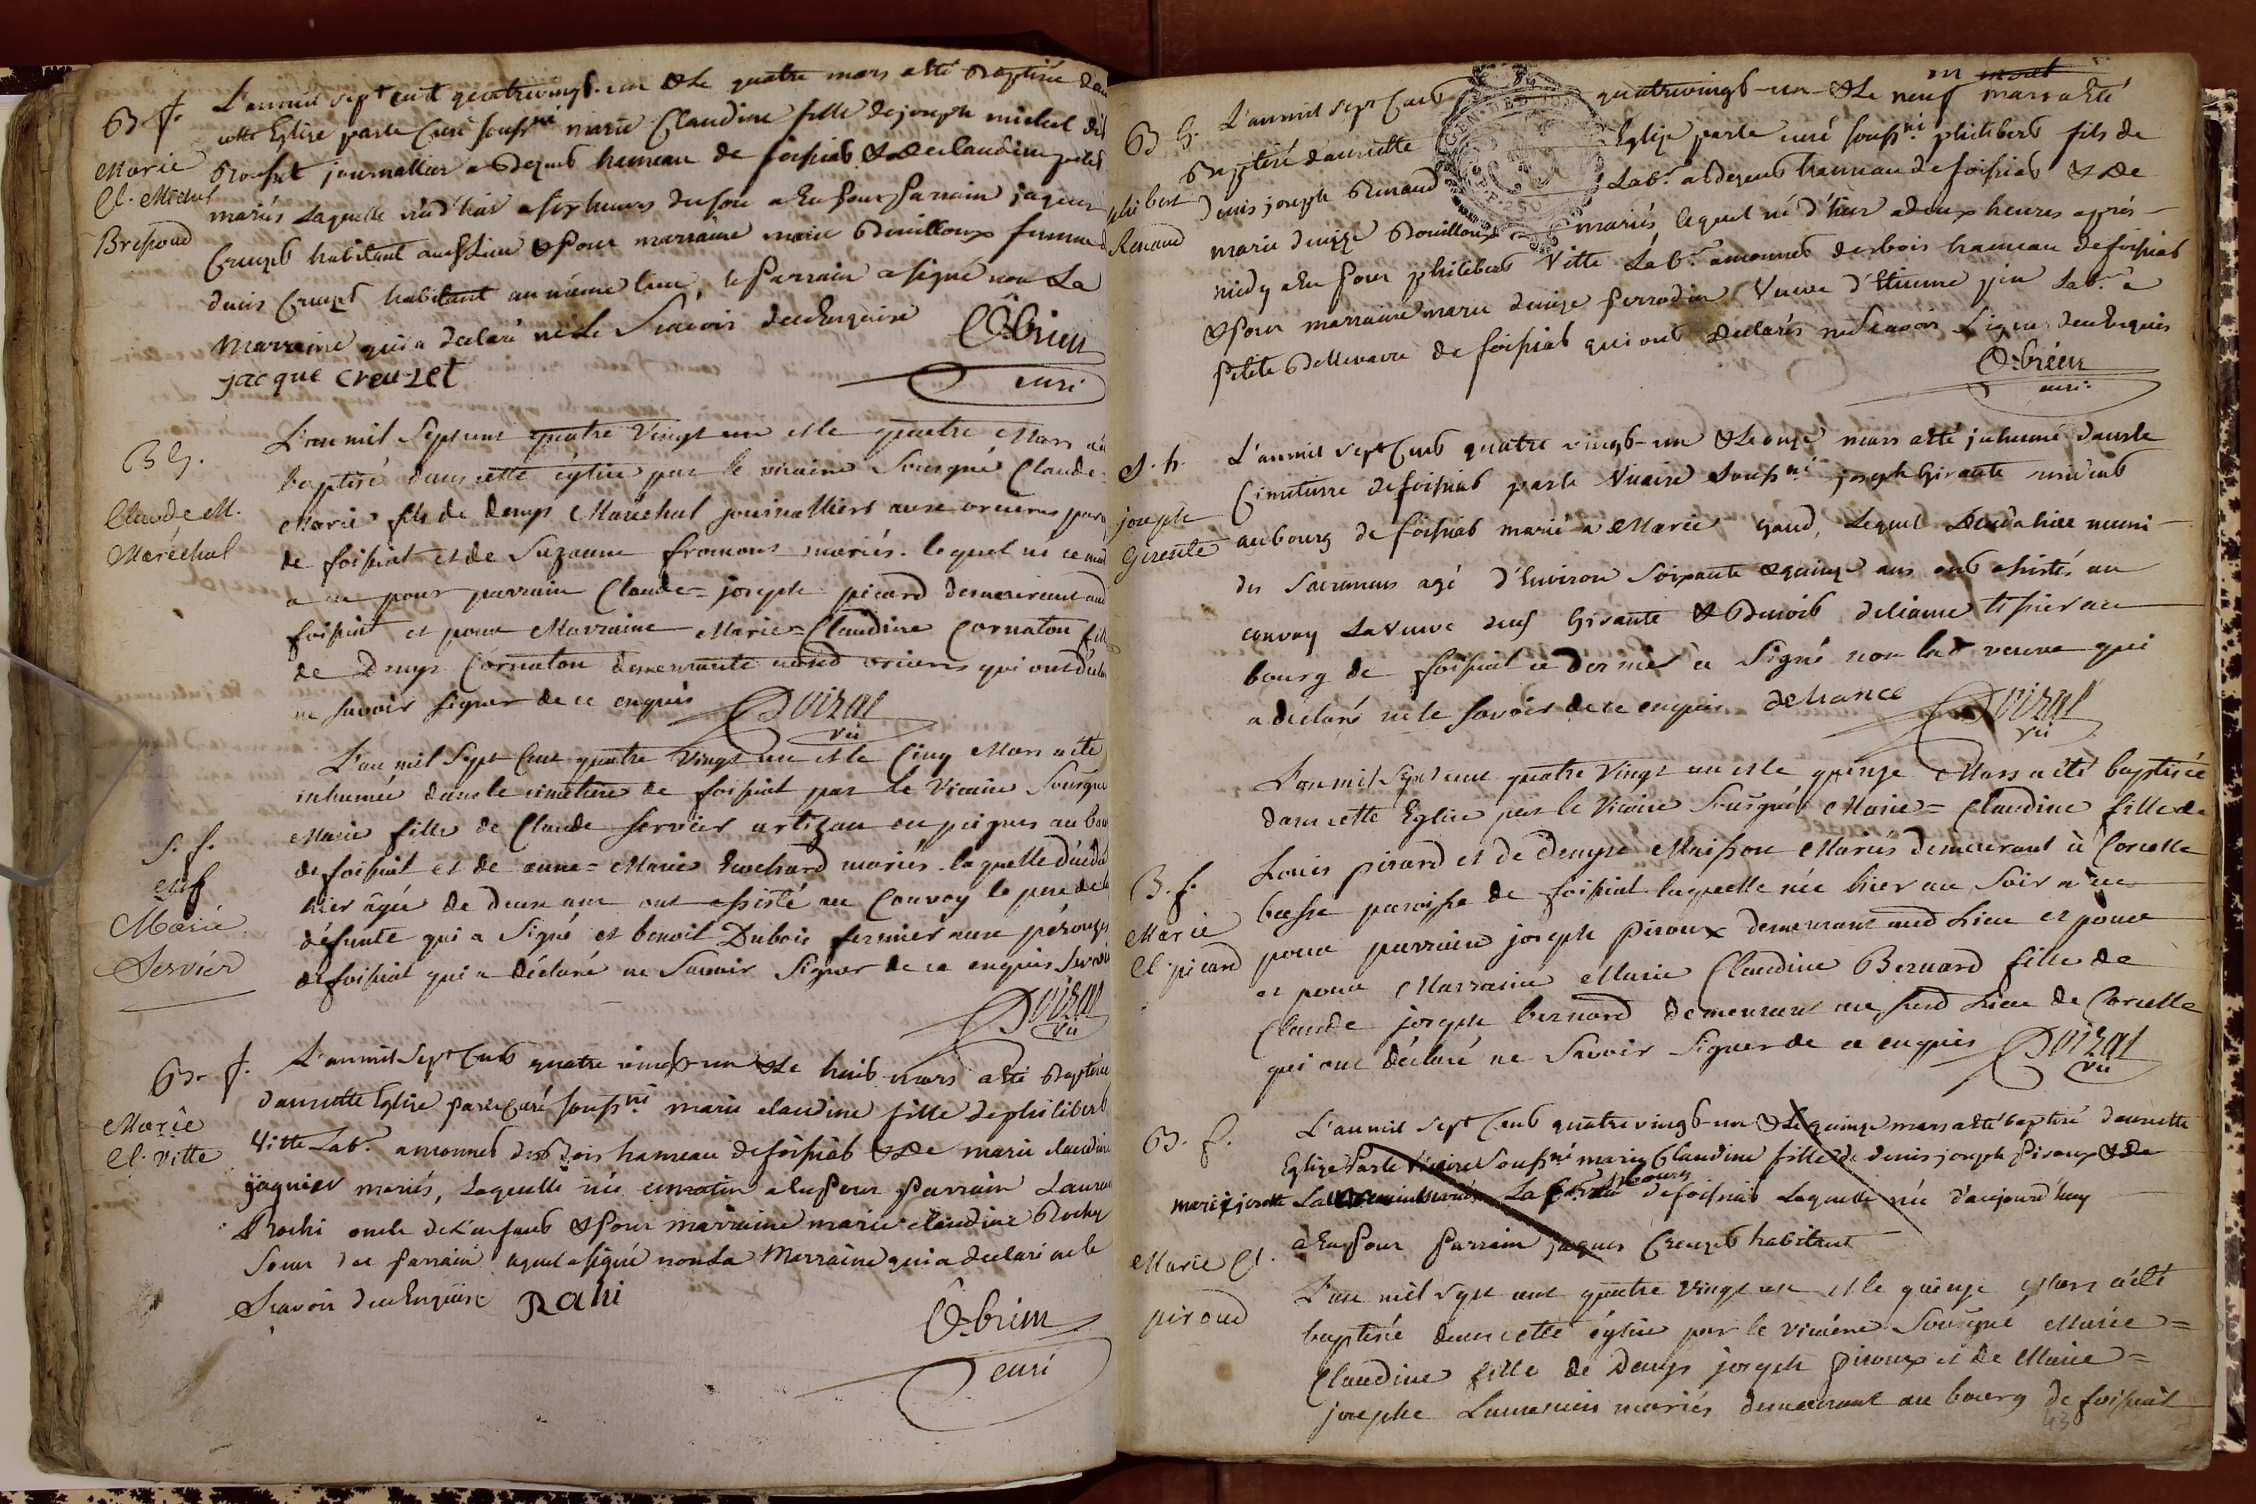 B. f.
Marie
Cl. Michel
Bressoud
L'an mil sept cent quatrevingt-un & Le quatre mars a eté Baptisée dans
cette Eglise par le Curé souss.né marie Claudine fille de joseph michel dit
journallier hameau de foissiat & de claudine
mariés Laquelle née d'hier a six heures du soir a Eu pour Parrain jaques
Creuzet habitant aud. Lieu & Pour marraine marie Bouilloux femme de
denis Creuzet habitant au même lieu, le Parrain a signé non La
Marraine qui a declaré ne Le Scavoir de ce Enquise
jacque creuzet
O-brien
curé
B g.
Claude M.
Maréchal
L'an mil Sept cent quatre Vingt un et le quatre Mars a été
baptisé dans cette église par le vicaire Sousigné Claude=
Marie fils de Denys Maréchal journallier
de foissiat et de Suzanne fromont mariés. lequel né ce
a eu pour parrain Claude=joseph picard demeurant aud
foissiat et pour Marraine Marie=Claudine Cornaton fille
de Denys Cornaton demeurante qui ont déclaré
ne savoir signer de ce enquis
Doizat
vic
S. f.
enf
Marie
Servier
L'an mil Sept Cent quatre Vingt un et le Cinq Mars a été
inhumée dans le cimetière de foissiat par le Vicaire Sousigné
Marie fille de Claude Servier artizan en peignes au bourg
de foissiat et de anne=Marie mariés. laquelle décédée
hier âgée de deux ans ont assisté au Convoy le pere de la
défunte qui a Signé et benoit Dubois fermier
de foissiat qui a déclaré ne Savoir Signer de ce enquis Servier
Doizat
vic
B. f.
Marie
Cl. vitte
L'an mil Sept Cent quatre vingt-un & Le huit mars a eté Baptisée
dans cette Eglise par le Curé souss.né marie claudine fille de philibert
Vitte Lab.r a monnet des Bois hameau de foissiat & de marie claudine
mariés, Laquelle née ce matin a Eu Pour Parrain Laurent
Rochi oncle de L'enfant & Pour marraine marie claudine Rochy
Soeur du Parrain lequel a signé non La Marraine qui a declaré ne le
Scavoir de ce Enquise Rahi
O-brien
curé
B g.
philibert
Renaud
L'an mil sept Cent quatrevingt-un & Le neuf mars a eté
Baptisé dans cette Eglise par le curé souss.né philibert fils de
denis joseph Renaud Lab.r hameau de foissiat & de
marie denize Bouilloux mariés lequel né d'hier a deux heures après-
midy a Eu Pour philibert Vitte Lab.r a monnet des bois hameau de foissiat
& Pour marraine marie denize Perrodin Veuve d'Etienne Lab.r a
Petite Bellevavre de foissiat qui ont declarés ne Scavoir Signer de ce Enquis
O-brien
curé
S. h.
joseph
Girente
L'an mil sept Cent quatre vingt-un & Le onze mars a eté inhumé dans le
Cimetierre de foissiat par le Vicaire Souss.né joseph Girante
au bourg de foissiat marié a Marie gaud, Lequel Décédé hier muni
des Sacrements agé d'Environ Soixante & quinze ans ont assistés au
convoy La Veuve dud Girante & Benoit tissier au
bourg de foissiat ce dernier a Signé non lad veuve qui
a déclaré ne le savoir de ce enquis
Doizat
vic
B. f.
Marie
Cl. picard
L'an mil Sept cent quatre Vingt un et le quinze Mars a été baptisée
dans cette Eglise par le Vicaire Sousigné Marie=Claudine fille de
Louis picard et de Denyse Maisson Mariés demeurant à Corcelle
basse paroisse de foissiat laquelle née hier au Soir a eu
pour parrain joseph Piroux demeurant aud Lieu et pour
et pour Marraine Marie Claudine Bernard fille de
Claude joseph bernard demeurant au susd Lieu de Corcelle
qui ont déclaré ne Savoir Signer de ce enquis
Doizat
vic
B. f.
L'an mil sept Cent quatrevingt-un & Le quinze mars a eté baptisé dans cette
Eglise Par le Vicaire Souss.né marie Claudine fille de denis joseph Piroux & de
de foissiat Laquelle née d'aujourd'huy
a Eu Pour Parrain jaques Creuzet habitant
Marie Cl.
piroud
L'an mil Sept cent quatre Vingt un et le quinze Mars a été
baptisée dans cette église par le vicaire Sousigné Marie=
Claudine fille de Denys joseph Piroux et de Marie=
josephe mariés demeurant au bourg de foissiat
43